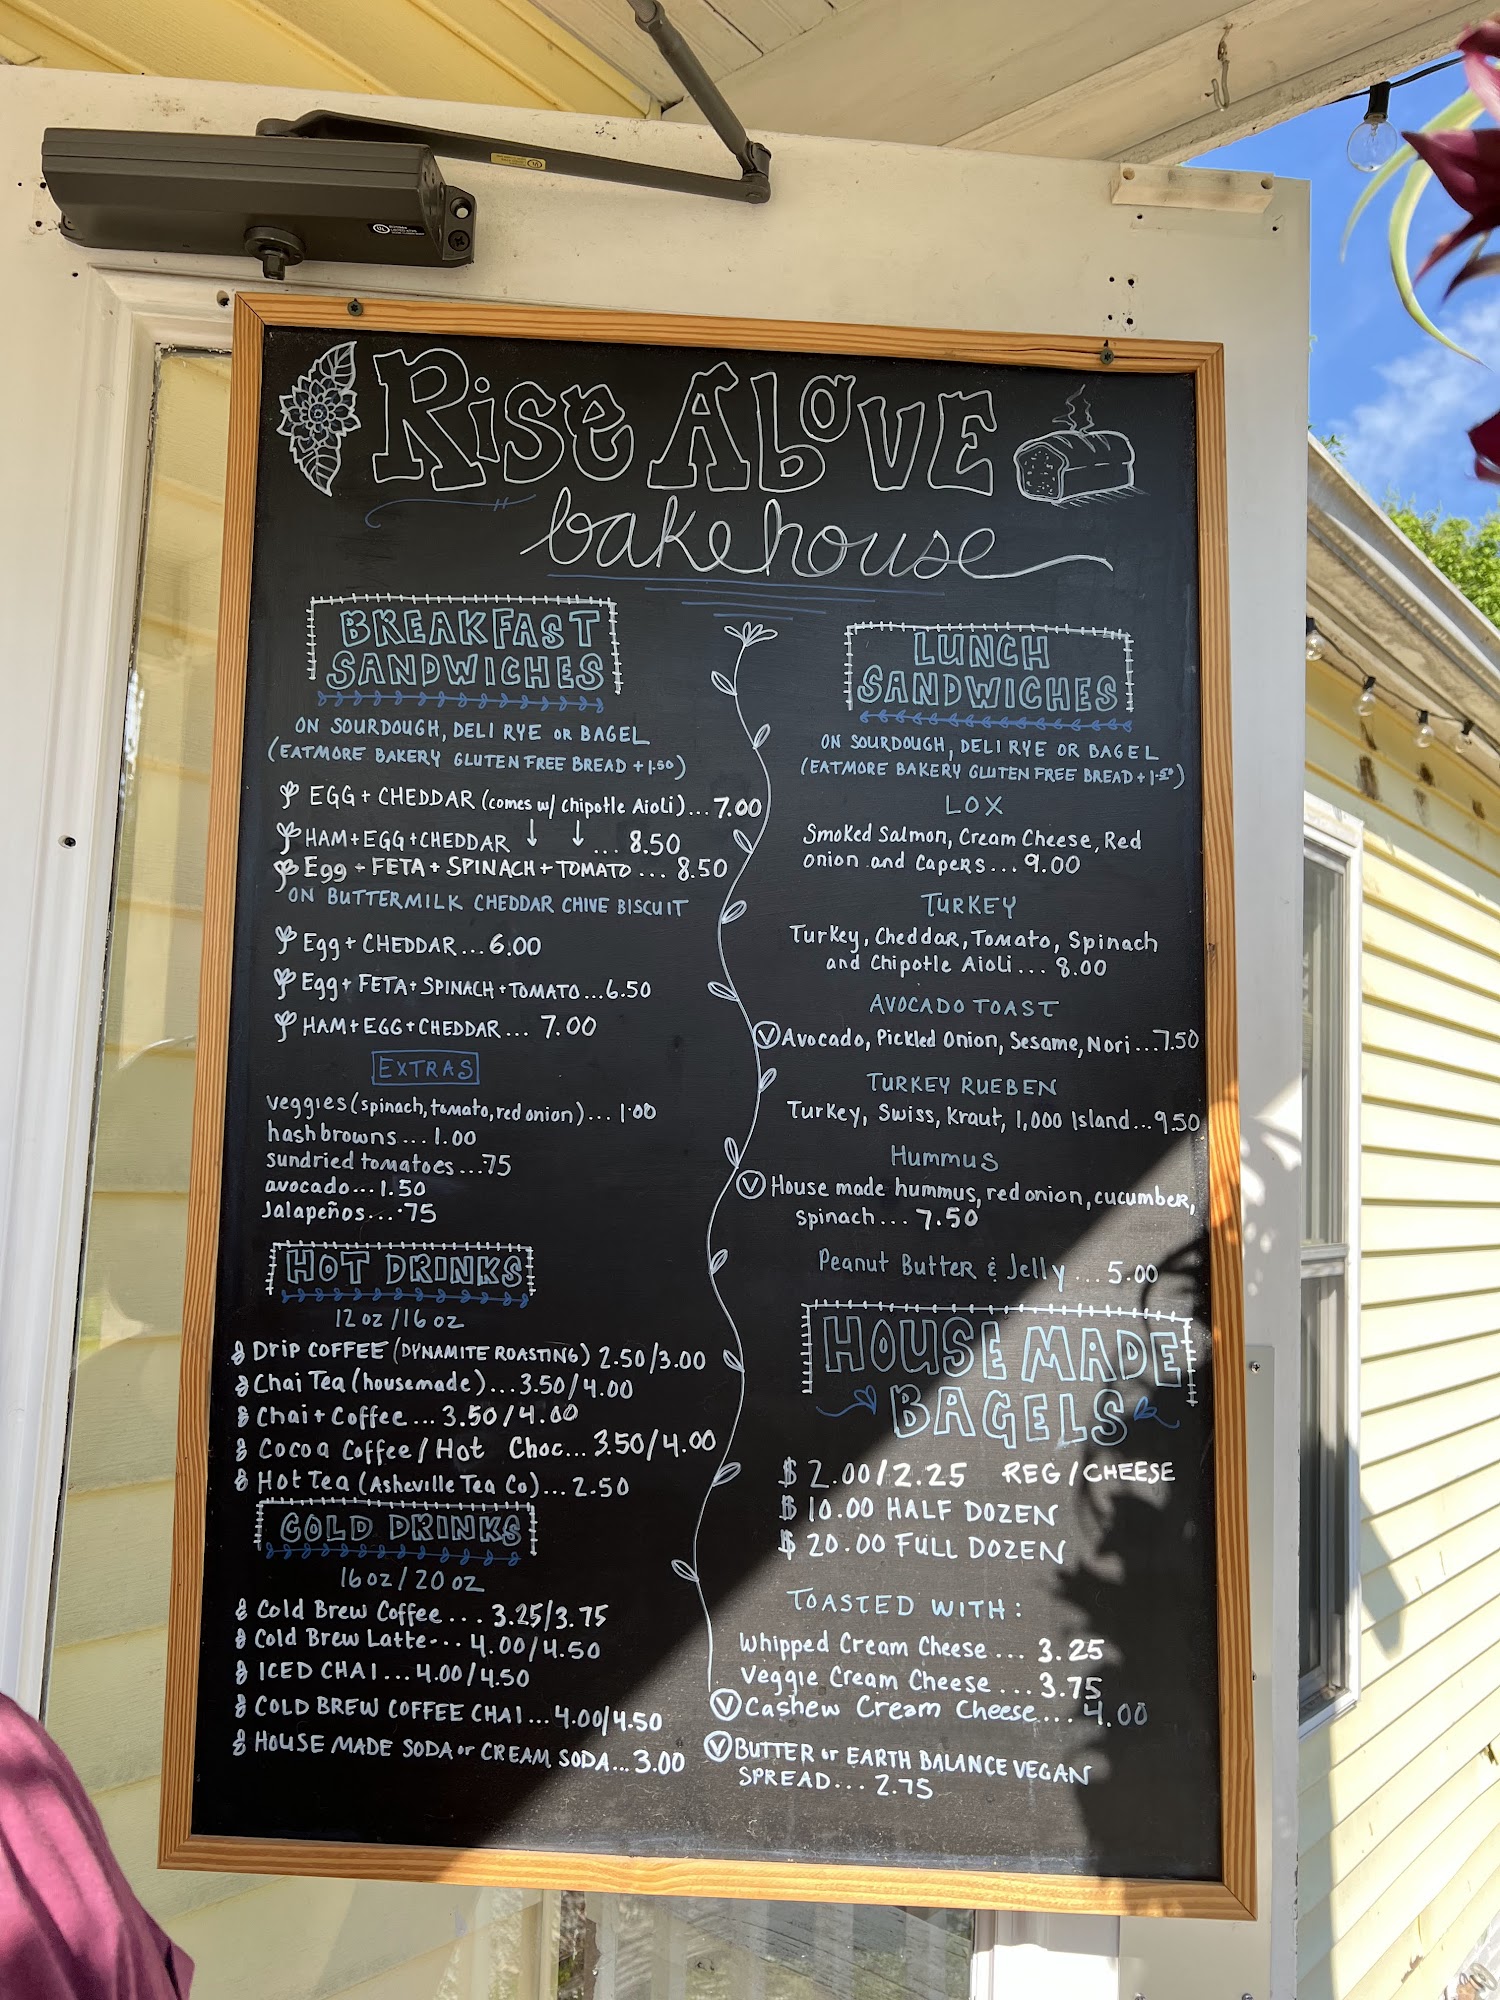 Rise Above
bakehouse
BREAKFAST
SANDWICHES
ON SOURDOUGH, DELI RYE OR BAGEL
(EATMORE BAKERY GLUTEN FREE BREAD +1.50)
EGG + CHEDDAR (comes w/ chipotle Aioli)...7.00
HAM+EGG+CHEDDAR ↓ ↓ ... 8.50
Egg + FETA + SPINACH + TOMATO ... 8.50
ON BUTTERMILK CHEDDAR CHIVE BISCUIT
Egg + CHEDDAR...6.00
Egg + FETA + SPINACH + TOMATO...6.50
HAM+EGG+CHEDDAR... 7.00
EXTRAS
veggies (spinach, tomato, red onion)... 1.00
hashbrowns...1.00
sundried tomatoes...75
avocado...1.50
Jalapeños....75
HOT DRINKS
12 oz / 16 oz
Drip COFFEE (DYNAMITE ROASTING) 2.50/3.00
Chai Tea (housemade)...3.50/4.00
Chai + Coffee...3.50/4.00
Cocoa Coffee / Hot Choc...3.50/4.00
Hot Tea (Asheville Tea Co)...2.50
COLD DRINKS
16 oz / 20 oz
Cold Brew Coffee... 3.25/3.75
Cold Brew Latte... 4.00/4.50
ICED CHAI...4.00/4.50
COLD BREW COFFEE CHAI...4.00/4.50
HOUSE MADE SODA or CREAM SODA...3.00
LUNCH
SANDWICHES
ON SOURDOUGH, DELI RYE OR BAGEL
(EATMORE BAKERY GLUTEN FREE BREAD +1.50)
LOX
Smoked Salmon, Cream Cheese, Red
onion and Capers...9.00
TURKEY
Turkey, Cheddar, Tomato, Spinach
and Chipotle Aioli... 8.00
AVOCADO TOAST
V Avocado, Pickled Onion, Sesame, Nori...7.50
TURKEY RUEBEN
Turkey, Swiss, Kraut, 1,000 Island...9.50
Hummus
V House made hummus, red onion, cucumber,
spinach... 7.50
Peanut Butter & Jelly...5.00
HOUSE MADE
BAGELS
$ 2.00/2.25 REG/CHEESE
$ 10.00 HALF DOZEN
$ 20.00 FULL DOZEN
TOASTED WITH:
Whipped Cream Cheese... 3.25
Veggie Cream Cheese...3.75
V Cashew Cream Cheese... 4.00
V BUTTER or EARTH BALANCE VEGAN
SPREAD... 2.75